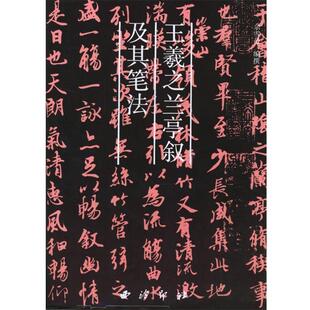 王羲之兰亭叙
及其笔法
于會稽山陰之蘭亭脩稧事
也羣賢畢至少長咸集此
有崇山峻領茂林脩竹又有清流激
左右引以為流觴曲水
列坐其次雖無絲竹管弦之
盛一觴一詠亦足以暢叙幽情
是日也天朗氣清惠風和暢仰
西泠印社